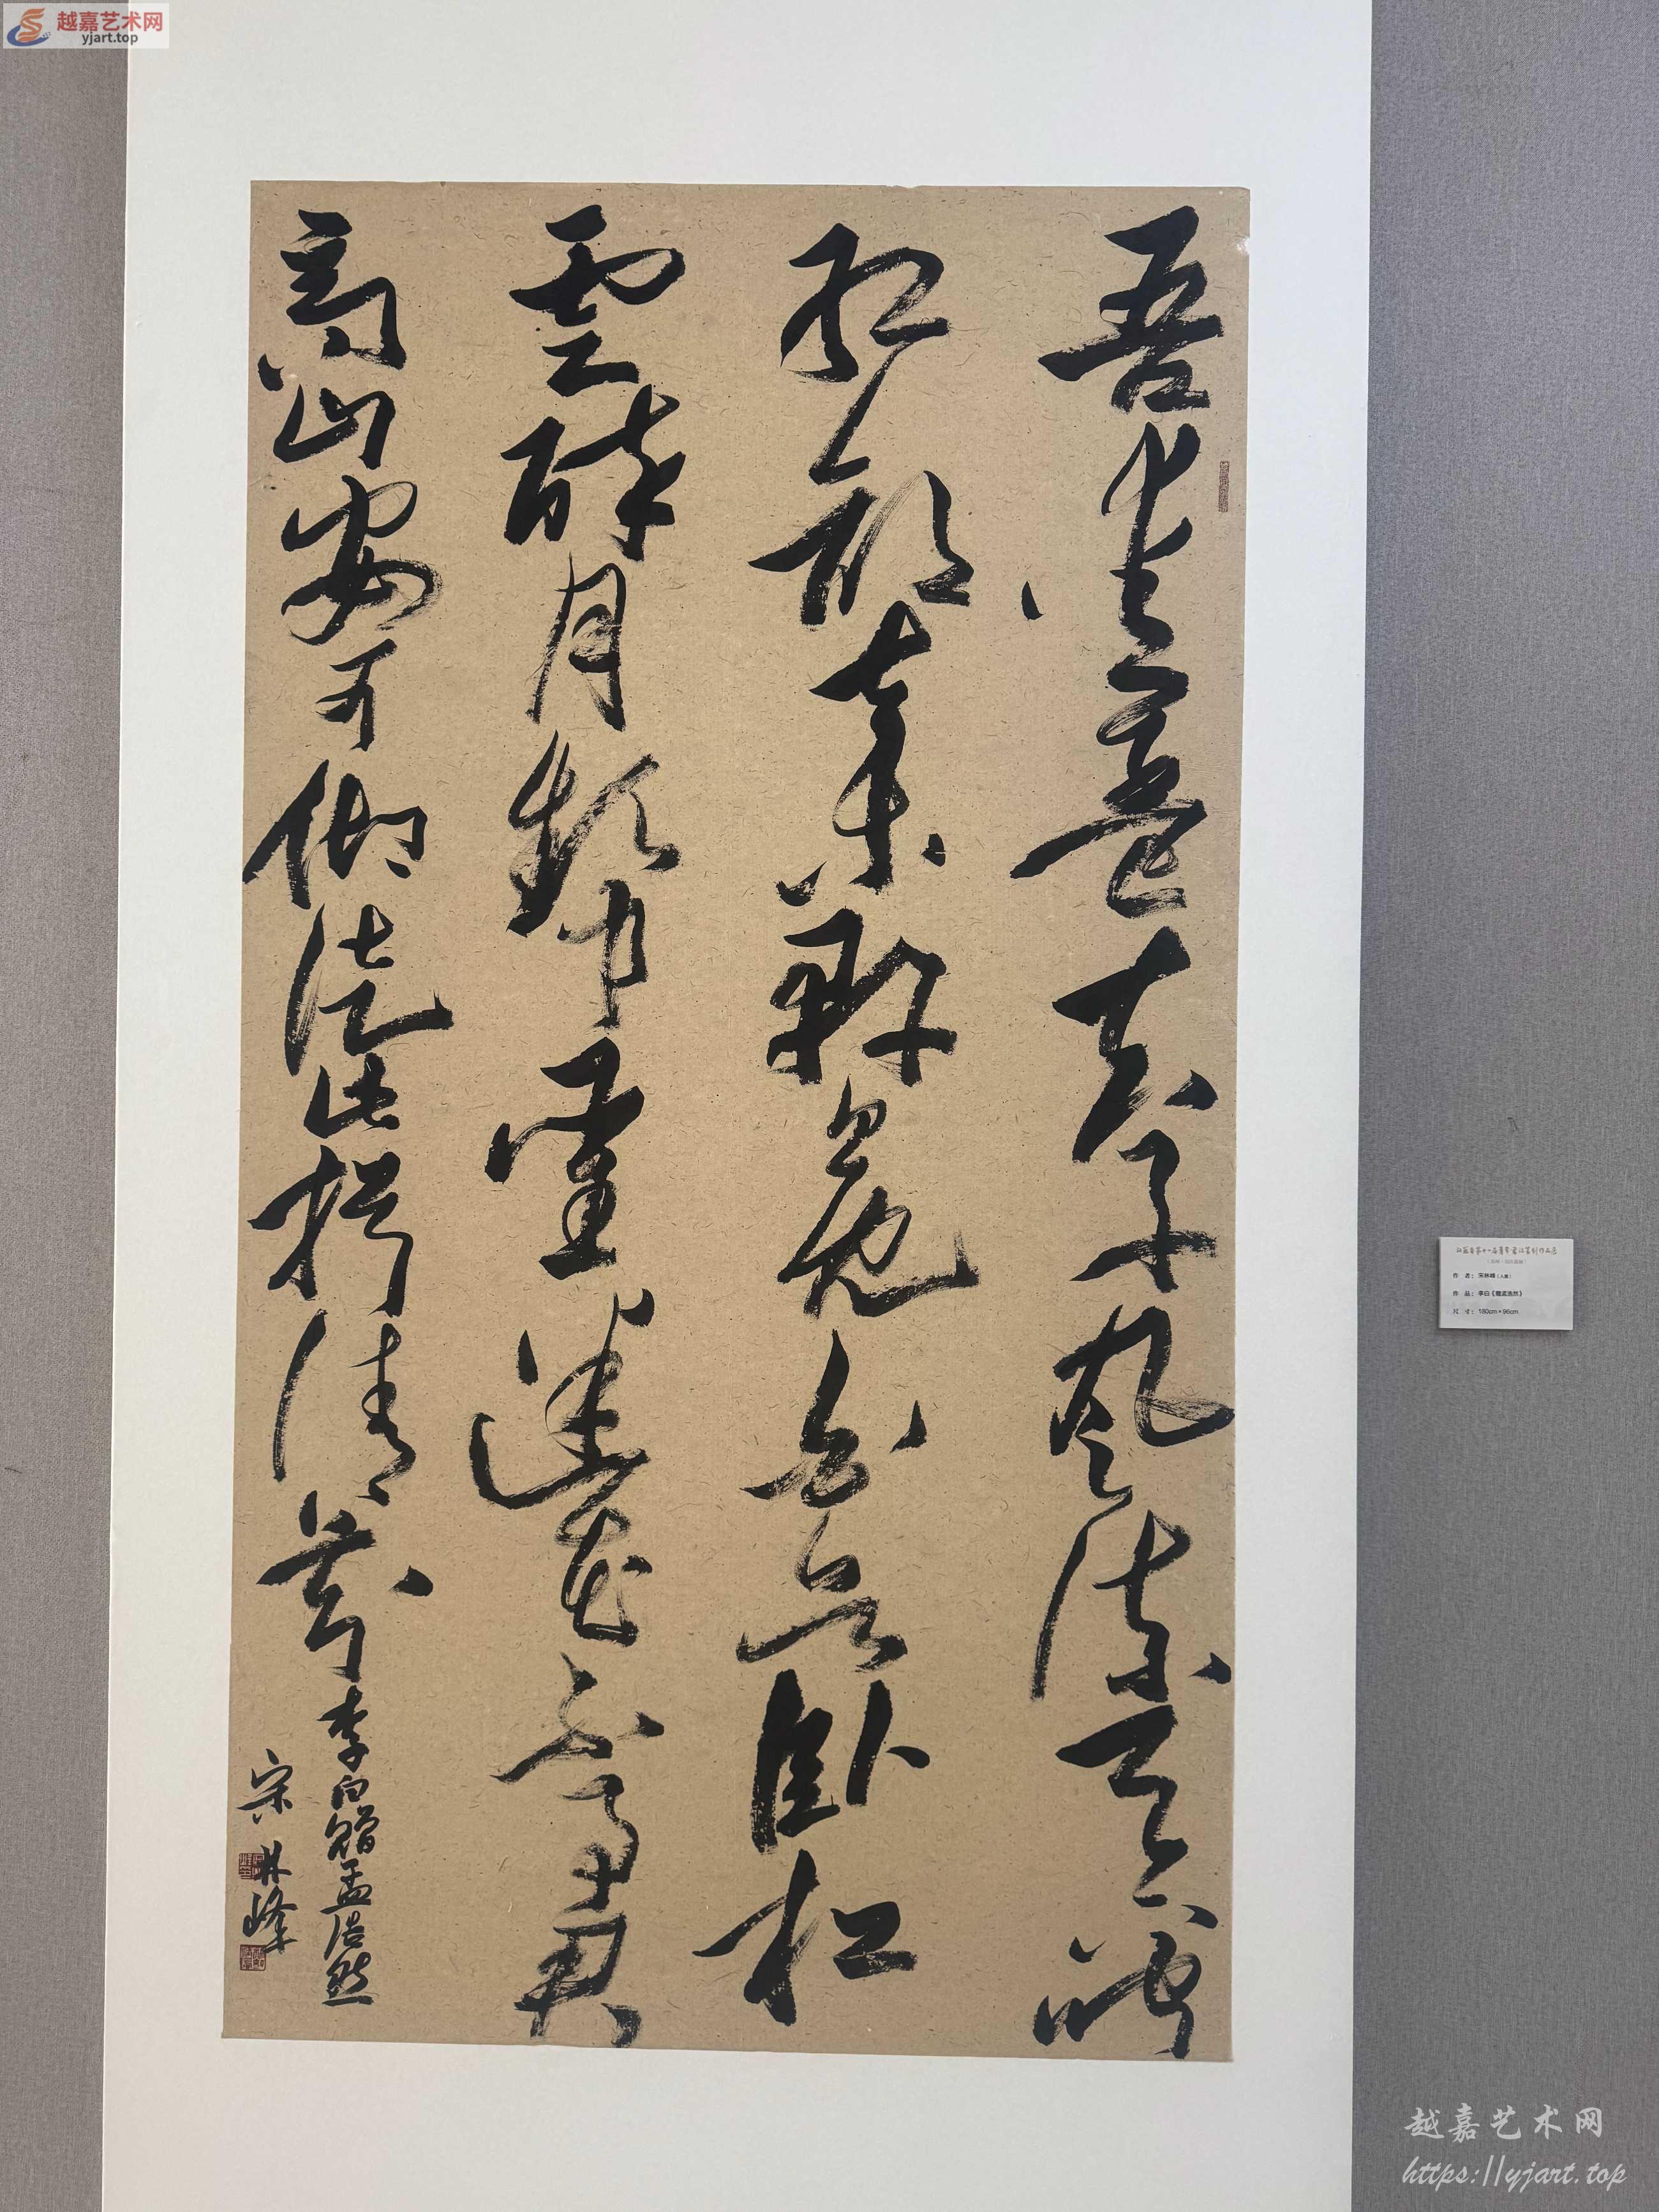 越嘉艺术网
yjart.top
吾愛孟夫子風流天下聞
紅顏棄軒冕白首卧松
雲醉月頻中聖迷花不事君
高山安可仰徒此揖清芬
李白贈孟浩然
宋林峰
第十一届青年書法篆刻作品展
作 者：宋林峰（入展）
作 品：李白《赠孟浩然》
尺 寸：180cm×96cm
越嘉艺术网
https://yjart.top